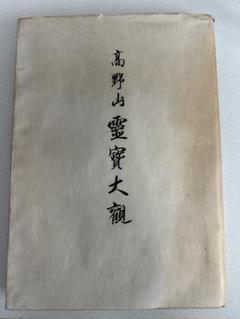 高野山靈寶大觀